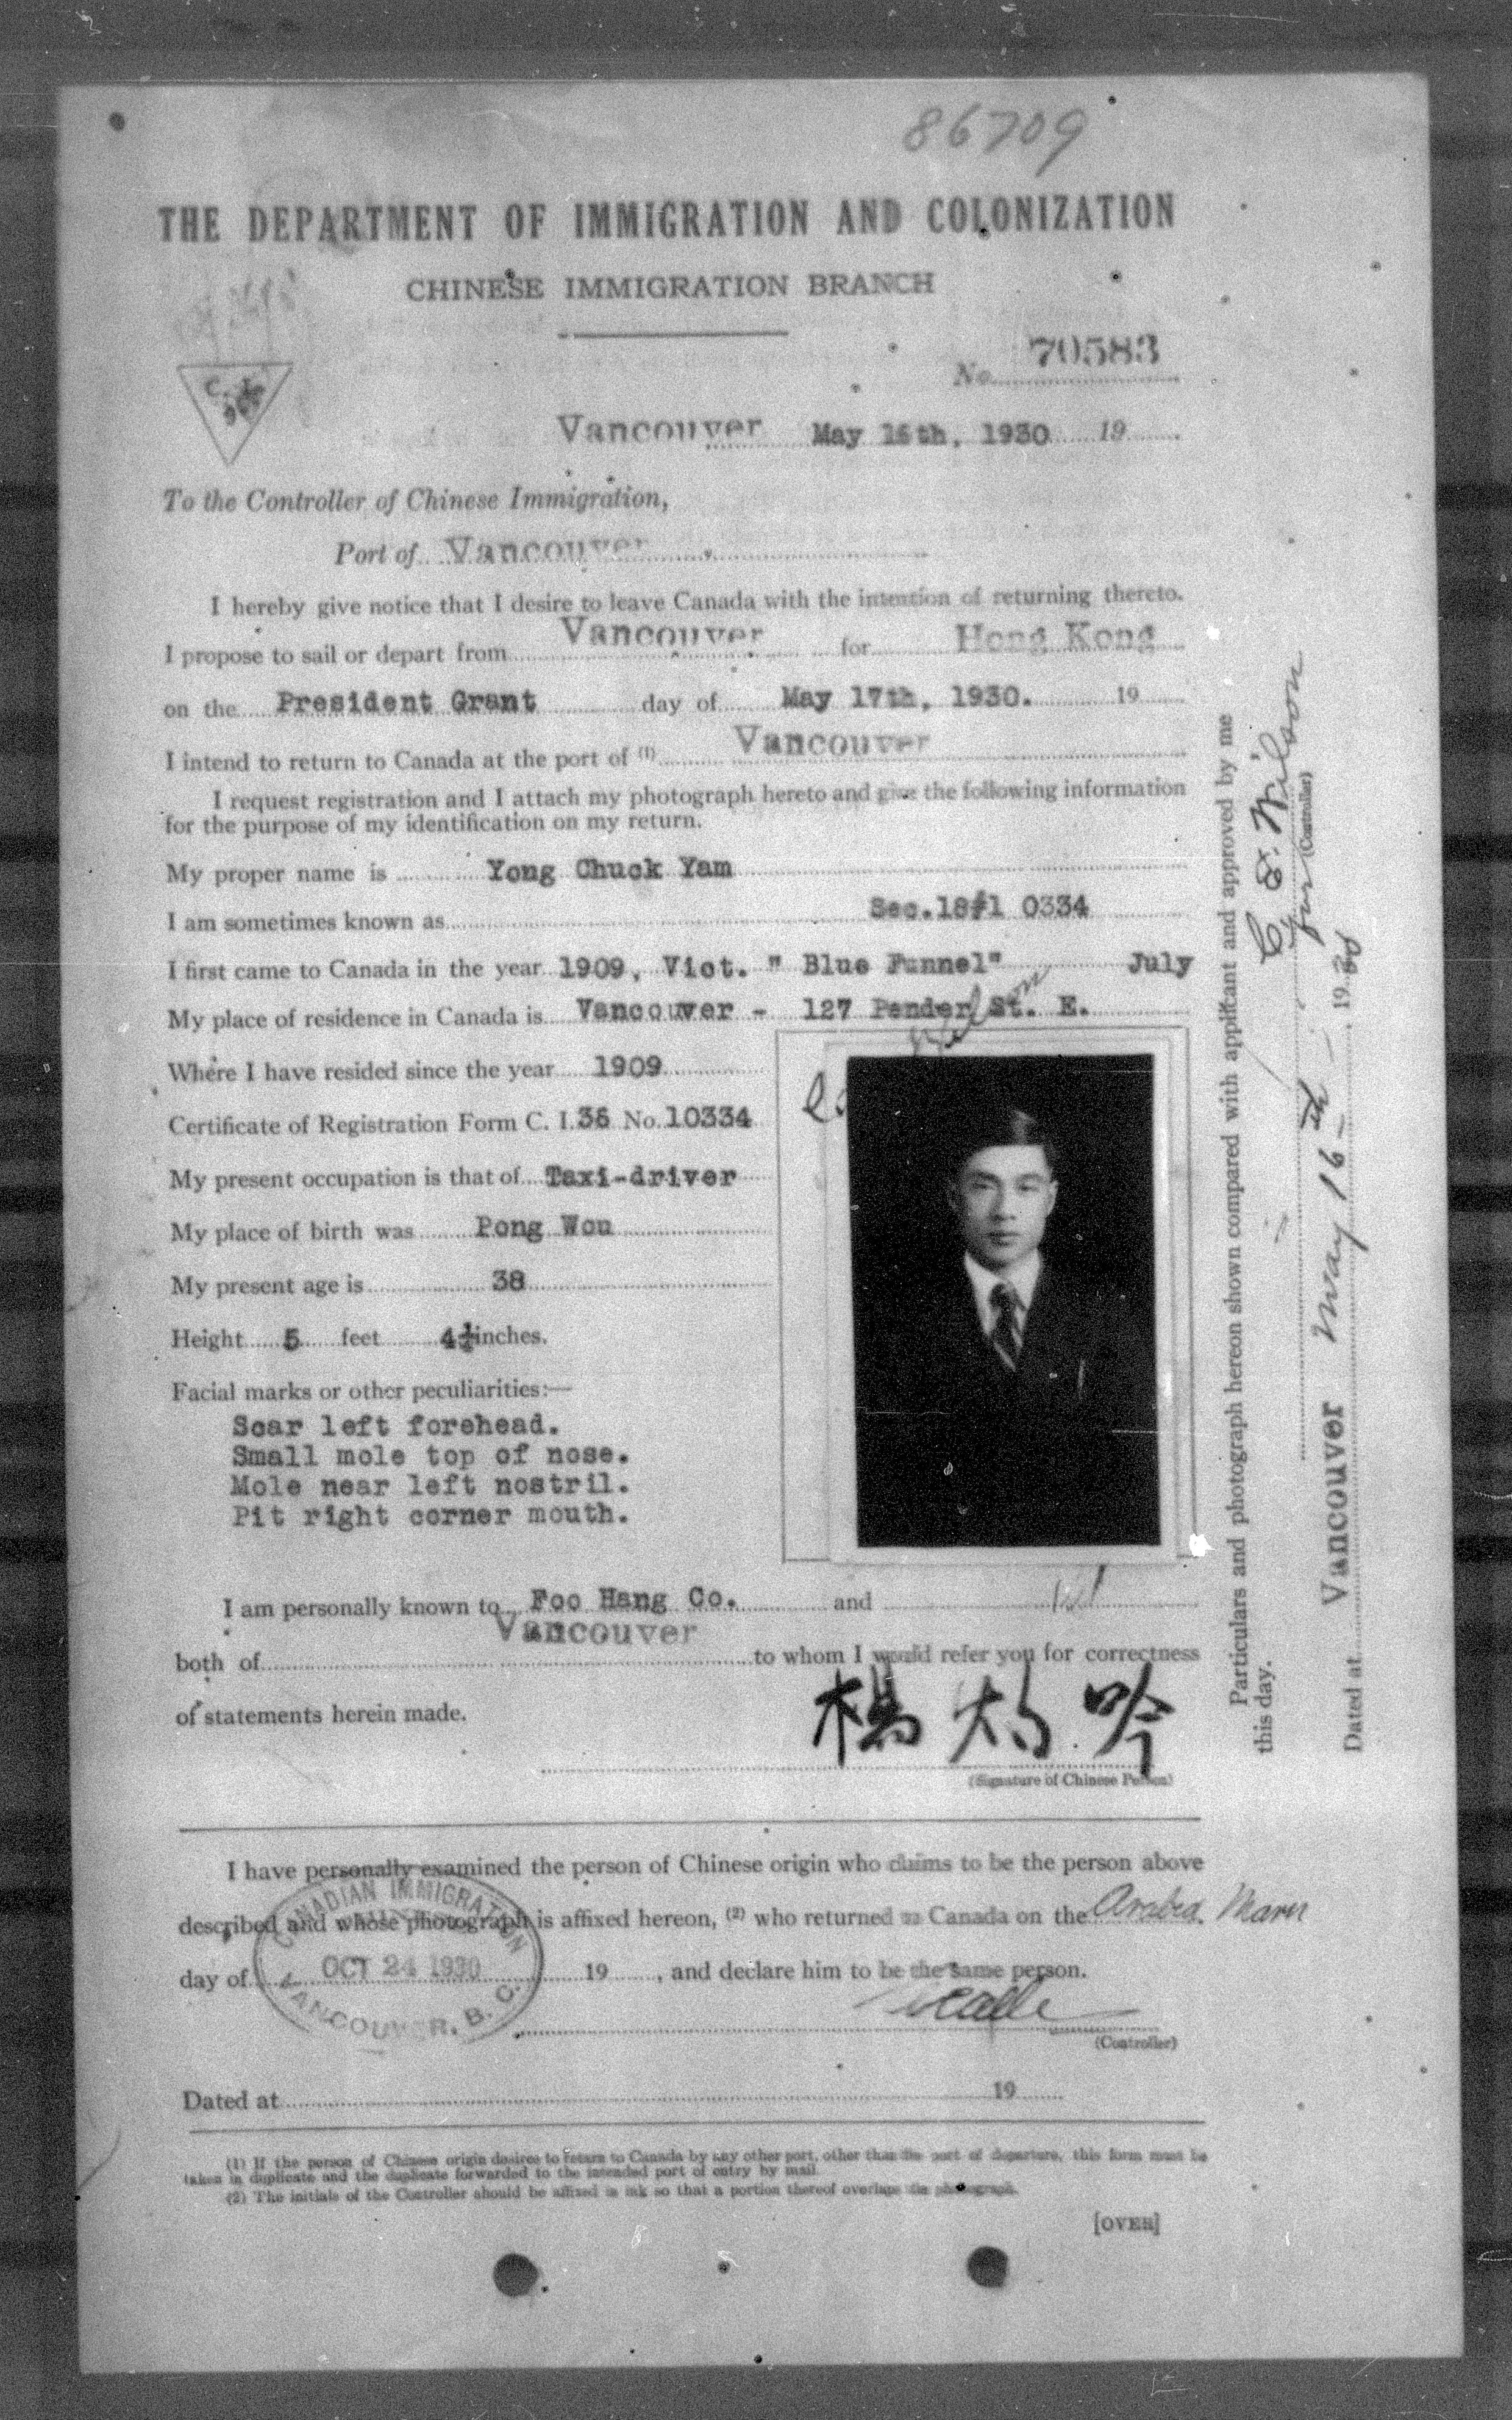 86709
THE DEPARTMENT OF IMMIGRATION AND COLONIZATION
CHINESE IMMIGRATION BRANCH
No. 70583
C. I.
Vancouver May 16th, 1930 19
To the Controller of Chinese Immigration,
Port of Vancouver
I hereby give notice that I desire to leave Canada with the intention of returning thereto.
I propose to sail or depart from Vancouver for Hong Kong
on the President Grant day of May 17th, 1930. 19
I intend to return to Canada at the port of (1) Vancouver
I request registration and I attach my photograph hereto and give the following information
for the purpose of my identification on my return.
My proper name is Yong Chuck Yam
I am sometimes known as Sec.18#1 0334
I first came to Canada in the year 1909, Vict. " Blue Funnel" July
My place of residence in Canada is Vancouver - 127 Pender St. E.
Where I have resided since the year 1909
Certificate of Registration Form C. I. 36 No. 10334
My present occupation is that of Taxi-driver
My place of birth was Pong Wou
My present age is 38
Height 5 feet 4½ inches.
Facial marks or other peculiarities:—
Scar left forehead.
Small mole top of nose.
Mole near left nostril.
Pit right corner mouth.
I am personally known to Foo Hang Co. and
both of Vancouver to whom I would refer you for correctness
of statements herein made.
楊 吟
(Signature of Chinese Person)
I have personally examined the person of Chinese origin who claims to be the person above
described and whose photograph is affixed hereon, (2) who returned to Canada on the Arabia Maru
day of 19 , and declare him to be the same person.
CANADIAN IMMIGRATION
OCT 24 1930
VANCOUVER, B. C.
(Controller)
Dated at 19
(1) If the person of Chinese origin desires to return to Canada by any other port, other than the port of departure, this form must be
taken in duplicate and the duplicate forwarded to the intended port of entry by mail.
(2) The initials of the Controller should be affixed in ink so that a portion thereof overlaps the photograph.
[OVER]
Particulars and photograph hereon shown compared with applicant and approved by me
this day.
C. E. Wilson
for (Controller)
Dated at Vancouver May 16th 1930